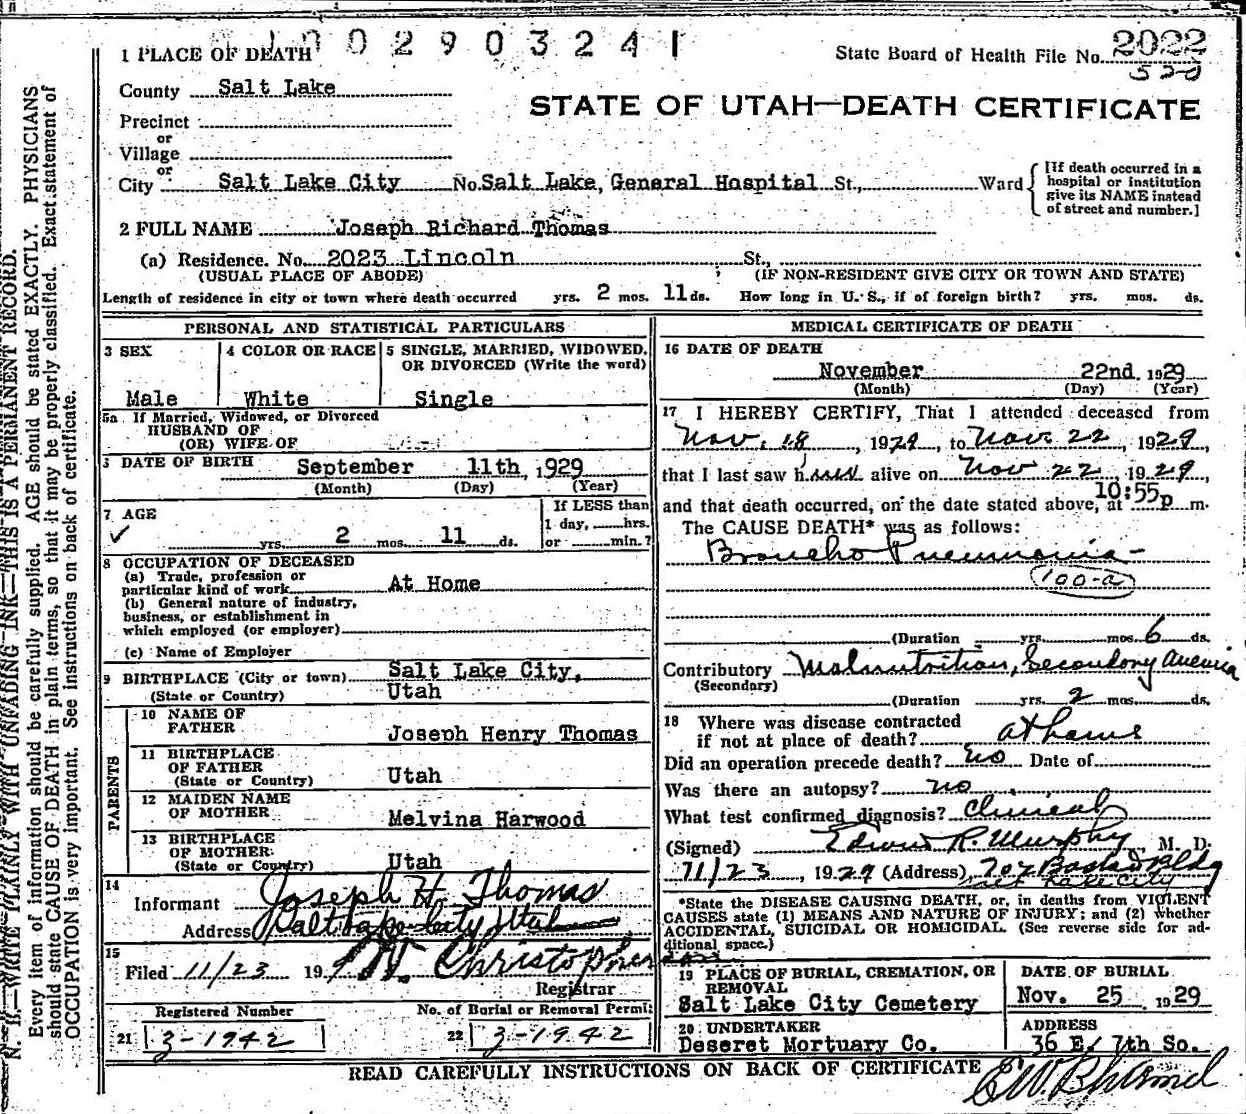 1002903241
1 PLACE OF DEATH
State Board of Health File No. 2022
520
County Salt Lake
STATE OF UTAH—DEATH CERTIFICATE
Precinct
or
Village
or
City Salt Lake City No. Salt Lake, General Hospital St., Ward
[If death occurred in a hospital or institution give its NAME instead of street and number.]
2 FULL NAME Joseph Richard Thomas
(a) Residence. No. 2023 Lincoln St.,
(USUAL PLACE OF ABODE) (IF NON-RESIDENT GIVE CITY OR TOWN AND STATE)
Length of residence in city or town where death occurred yrs. 2 mos. 11 ds. How long in U. S., if of foreign birth? yrs. mos. ds.
PERSONAL AND STATISTICAL PARTICULARS
3 SEX
Male
4 COLOR OR RACE
White
5 SINGLE, MARRIED, WIDOWED, OR DIVORCED (Write the word)
Single
5a If Married, Widowed, or Divorced
HUSBAND OF
(OR) WIFE OF
DATE OF BIRTH September 11th, 1929
(Month) (Day) (Year)
7 AGE
yrs. 2 mos. 11 ds.
If LESS than
1 day, hrs.
or min.?
8 OCCUPATION OF DECEASED
(a) Trade, profession or
particular kind of work At Home
(b) General nature of industry,
business, or establishment in
which employed (or employer)
(c) Name of Employer
9 BIRTHPLACE (City or town) Salt Lake City,
(State or Country) Utah
PARENTS
10 NAME OF
FATHER Joseph Henry Thomas
11 BIRTHPLACE
OF FATHER
(State or Country) Utah
12 MAIDEN NAME
OF MOTHER Melvina Harwood
13 BIRTHPLACE
OF MOTHER
(State or Country) Utah
14
Informant Joseph H. Thomas
Address Salt Lake City Utah
15
Filed 11/23 19 W. Christopherson
Registrar
Registered Number
21 3-1942
No. of Burial or Removal Permit
22 3-1942
MEDICAL CERTIFICATE OF DEATH
16 DATE OF DEATH
November 22nd, 1929
(Month) (Day) (Year)
17 I HEREBY CERTIFY, That I attended deceased from
Nov. 18, 1929, to Nov. 22, 1929,
that I last saw him alive on Nov 22, 1929,
and that death occurred, on the date stated above, at 10:55 p m.
The CAUSE DEATH* was as follows:
Broncho Pneumonia -
100-a
(Duration yrs. mos. 6 ds.
Contributory Malnutrition, Secondary Anemia
(Secondary)
(Duration yrs. 2 mos. ds.
18 Where was disease contracted
if not at place of death? at home
Did an operation precede death? no Date of
Was there an autopsy? no
What test confirmed diagnosis? Clinical
(Signed) Edwin R. Murphy, M. D.
11/23, 1929 (Address) 707 Boston Bldg
Salt Lake City
*State the DISEASE CAUSING DEATH, or, in deaths from VIOLENT
CAUSES state (1) MEANS AND NATURE OF INJURY; and (2) whether
ACCIDENTAL, SUICIDAL OR HOMICIDAL. (See reverse side for ad-
ditional space.)
19 PLACE OF BURIAL, CREMATION, OR
REMOVAL
Salt Lake City Cemetery
DATE OF BURIAL
Nov. 25 1929
20 UNDERTAKER
Deseret Mortuary Co.
ADDRESS
36 E. 7th So.
READ CAREFULLY INSTRUCTIONS ON BACK OF CERTIFICATE
N. B.—WRITE PLAINLY WITH UNFADING INK—THIS IS A PERMANENT RECORD.
Every item of information should be carefully supplied. AGE should be stated EXACTLY. PHYSICIANS
should state CAUSE OF DEATH in plain terms, so that it may be properly classified. Exact statement of
OCCUPATION is very important. See instructions on back of certificate.